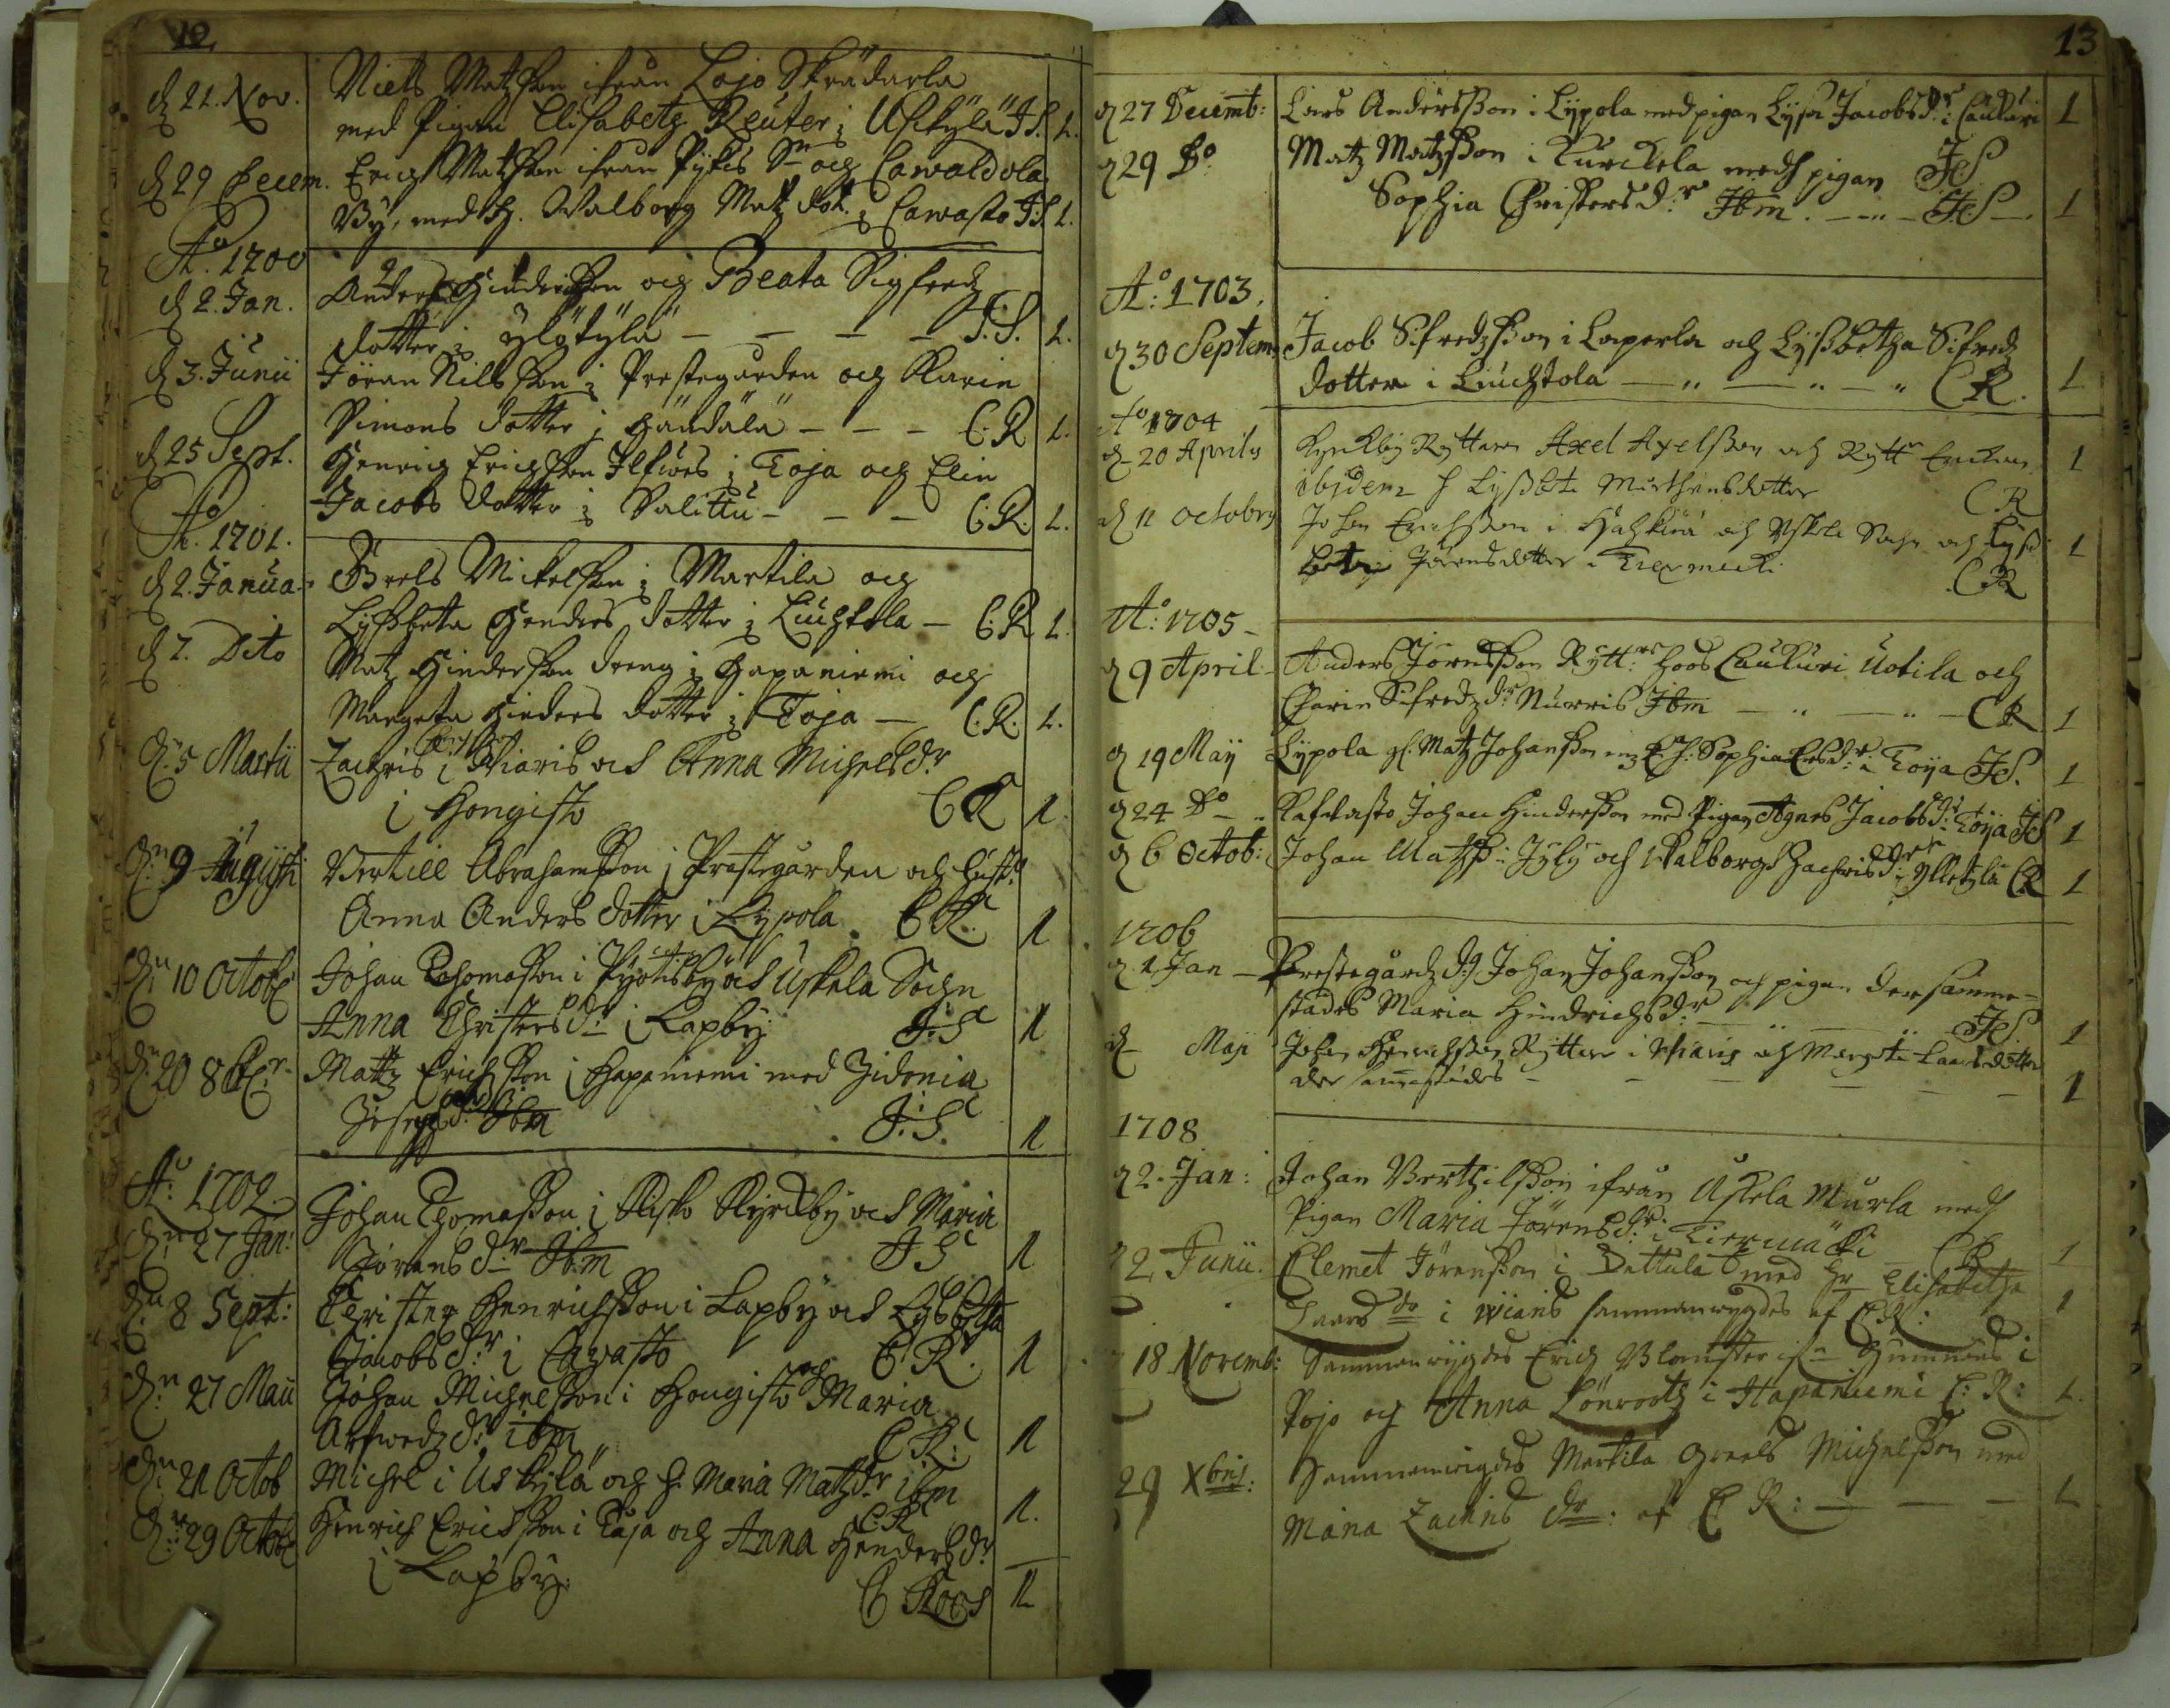 12.
d 21. Nov. Niels Matzson ifrån Lojo Skräddarla
med Pigan Elisabetz Reuter i Uskylä J.S. 1.
d 29 Decem. Erich Matzson ifrån Pykis Sn och Cawaldola
By, med H. Walborg Matz dot. i Cawasto J.S. 1.
Ao. 1700
d 2. Jan. Anders Hinderson och Beata Sigfredz
dotter i Ylötylä — — — — J.S. 1.
d 3. Junii Jöran Nilsson i Prestegården och Karin
Simons dotter i — — — C.R 1.
d 25 Sept. Henrich Erichson i Toja och Elin
Jacobs dotter i Salittu — — — C.R. 1.
Ao. 1701.
d 2. Januar. Grels Mickelson i Martila och
Lyssbeta Henders dotter i Liuchtola — C.R 1.
d 7. Dito Matz Hinderson dreng i Hapaniemi och
Margeta Hinders dotter i Toja — C.R. 1.
d. 5 Martii Zachris i Wiaris och Anna Michelsdr
i Hongisto CR 1.
dn 9 Augusti Bertill Abrahamsson i Prästegården och
Anna Anders dotter i Lypola. CR. 1
dn 10 Octob Johan Thomasson i by och Uskela Sochn
Anna Christersdr i Lapby J.S 1
dn 20 8br Mattz Erichsson i Hapaniemi med Zidonia
Josephdr Ibm J.S. 1
Ao 1702
dn 27 Jan: Johan Thomasson i Kisko Kyrckby och Maria
Jörans dr Ibm JS 1
dn 8 Sept: Christer Henrichsson i Lapby och Lysbetha
Jacobs dr i Cavasto CR. 1
dn 27 Maii Johan Michelsson i Hongisto och Maria
Arfwedz dr ibm CR: 1
dn 21 Octob Michel i Uskylä och h. Maria Matzdr ibm
C.R 1.
dn 29 Octob Henrich Ericsson i Toja och Anna Hendersdr
i Lapby. C Roos 1
13
d 27 Decemb: Lars Andersson i Lypola med pigan Lysa Jacobs dr i Caukuri 1
d 29 Do Matz Matzsson i Kurckela med pigan JS
Sophia Christers dr Ibm. — — JS — 1
Ao: 1703.
d 30 Septem Jacob Sifredzsson i Laperla och Lyssbetha Sifredz
dotter i Liuchtola — " — " — " CR. 1
Ao 1704
d 20 Aprilis Kyrckby Ryttaren Axel Axelsson och Rytt Enckan 1
ibidem h Lyssbeta Mårthensdotter CR
d 11 octobris Johan Erichsson i och Uskela Sochn och Lyss 1
beta Jöransdotter i Tiermecki CR
Ao: 1705 —
d 9 April. Anders Jörensson Rytt: hoos Caukuri Uotila och
Carin Sifredz dr Nurris Ibm — " — " — CR 1
d 19 Maÿ Lypola Matz Johansson och E. h: Sophia dr i Toija JS. 1
d 24 Do Kafwasto Johan Hindersson med Pigan Agnes Jacobs dr i Toija JS 1
d 6 Octob: Johan Matzss i Jyly och Walborg Zachris dr i Yllekylä CR 1
1706
d 1 Jan — Prestegårdz dr Johan Johansson och pigan dersamme-
städes Maria Hindrichs dr — — JS 1
d Maji Johan Henrichsson Ryttare i Wiaris och Margeta Larsdotter
der sammastädes — — — — 1
1708
d 2. Jan: Johan Berthilsson ifrån Uskela Murla med
Pigan Maria Jörens dr: i Tiermäcki CR 1
2 Junii. Clemet Jörensson i Dettula med hr Elisabetha
Lars dr i Wiaris sammanwygdes af CR: 1
18 Novemb: Sammanwygdes Erich Blomster i
Pojo och Anna Lönroots i Hapaniemi C: R: 1.
29 Xbris: Sammanwigdes Martila Greels Michelsson med
Maria Zachris dr: af C R: — — — 1